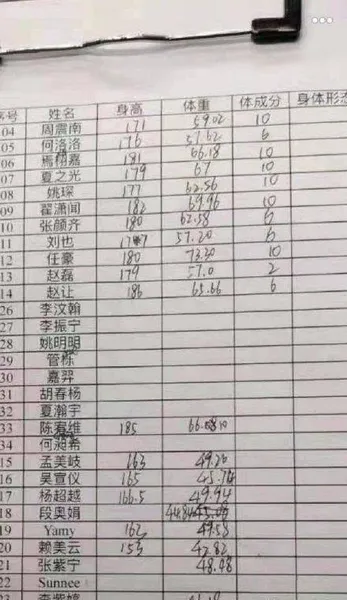 序号 姓名 身高 体重 体成分 身体形态
04 周震南 171 59.02 10
05 何洛洛 176 57.62 6
06 焉栩嘉 181 66.18 10
07 夏之光 179 67 10
08 姚琛 177 62.56 10
09 翟潇闻 182 69.96 10
10 张颜齐 180 62.58 6
11 刘也 177 57.20 6
12 任豪 180 73.30 10
13 赵磊 179 57.0 2
14 赵让 186 65.66 6
26 李汶翰
27 李振宁
28 姚明明
29 管栎
30 嘉羿
31 胡春杨
32 夏瀚宇
33 陈宥维 185
34 何昶希
15 孟美岐 163 49.20
16 吴宣仪 165 45.74
17 杨超越 166.5 49.94
18 段奥娟
19 Yamy 162 49.58
20 赖美云 153 42.82
21 张紫宁 48.08
22 Sunnee
23 李紫婷